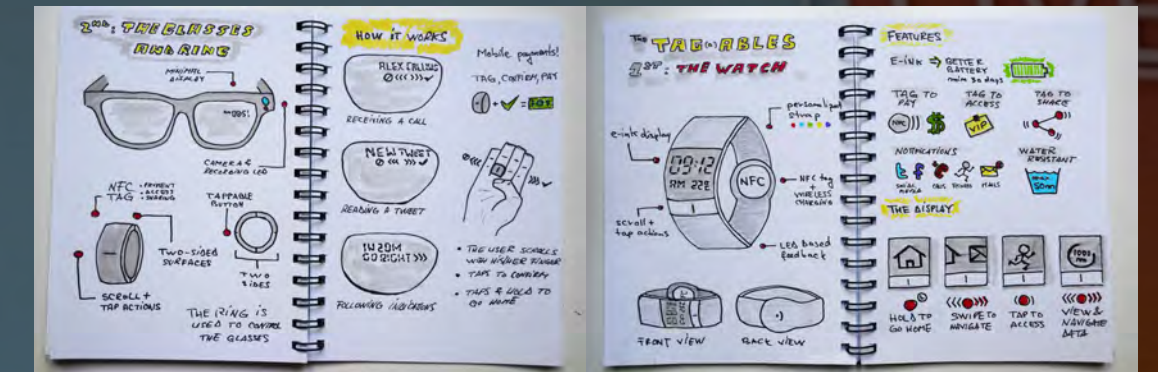 2ND: THE GLASSES
AND RING
MINIMAL
DISPLAY
CAMERA &
RECORDING LED
NFC
TAG
• PAYMENT
• ACCESS
• SHARING
TAPPABLE
BUTTON
TWO-SIDED
SURFACES
TWO
SIDES
SCROLL +
TAP ACTIONS
THE RING IS
USED TO CONTROL
THE GLASSES
HOW IT WORKS
ALEX CALLING
RECEIVING A CALL
NEW TWEET
READING A TWEET
IN 20M
GO RIGHT >>>
FOLLOWING INDICATIONS
Mobile payments!
TAG, CONFIRM, PAY
• THE USER SCROLLS
WITH HIS/HER FINGER
• TAPS TO CONFIRM
• TAPS & HOLD TO
GO HOME
THE TAG(N)ABLES
1ST: THE WATCH
personalized
strap
e-ink display
09:12
NFC
NFC tag
+
WIRELESS
CHARGING
scroll +
tap actions
LED based
feedback
FRONT VIEW
BACK VIEW
FEATURES
E-INK ⇒ BETTER
BATTERY
min 30 days
TAG TO
PAY
TAG TO
ACCESS
TAG TO
SHARE
NFC
$
VIP
NOTIFICATIONS
WATER
RESISTANT
SOCIAL
MEDIA
CALLS
MAILS
50m
THE DISPLAY
HOLD TO
GO HOME
SWIPE TO
NAVIGATE
TAP TO
ACCESS
VIEW &
NAVIGATE
DATA